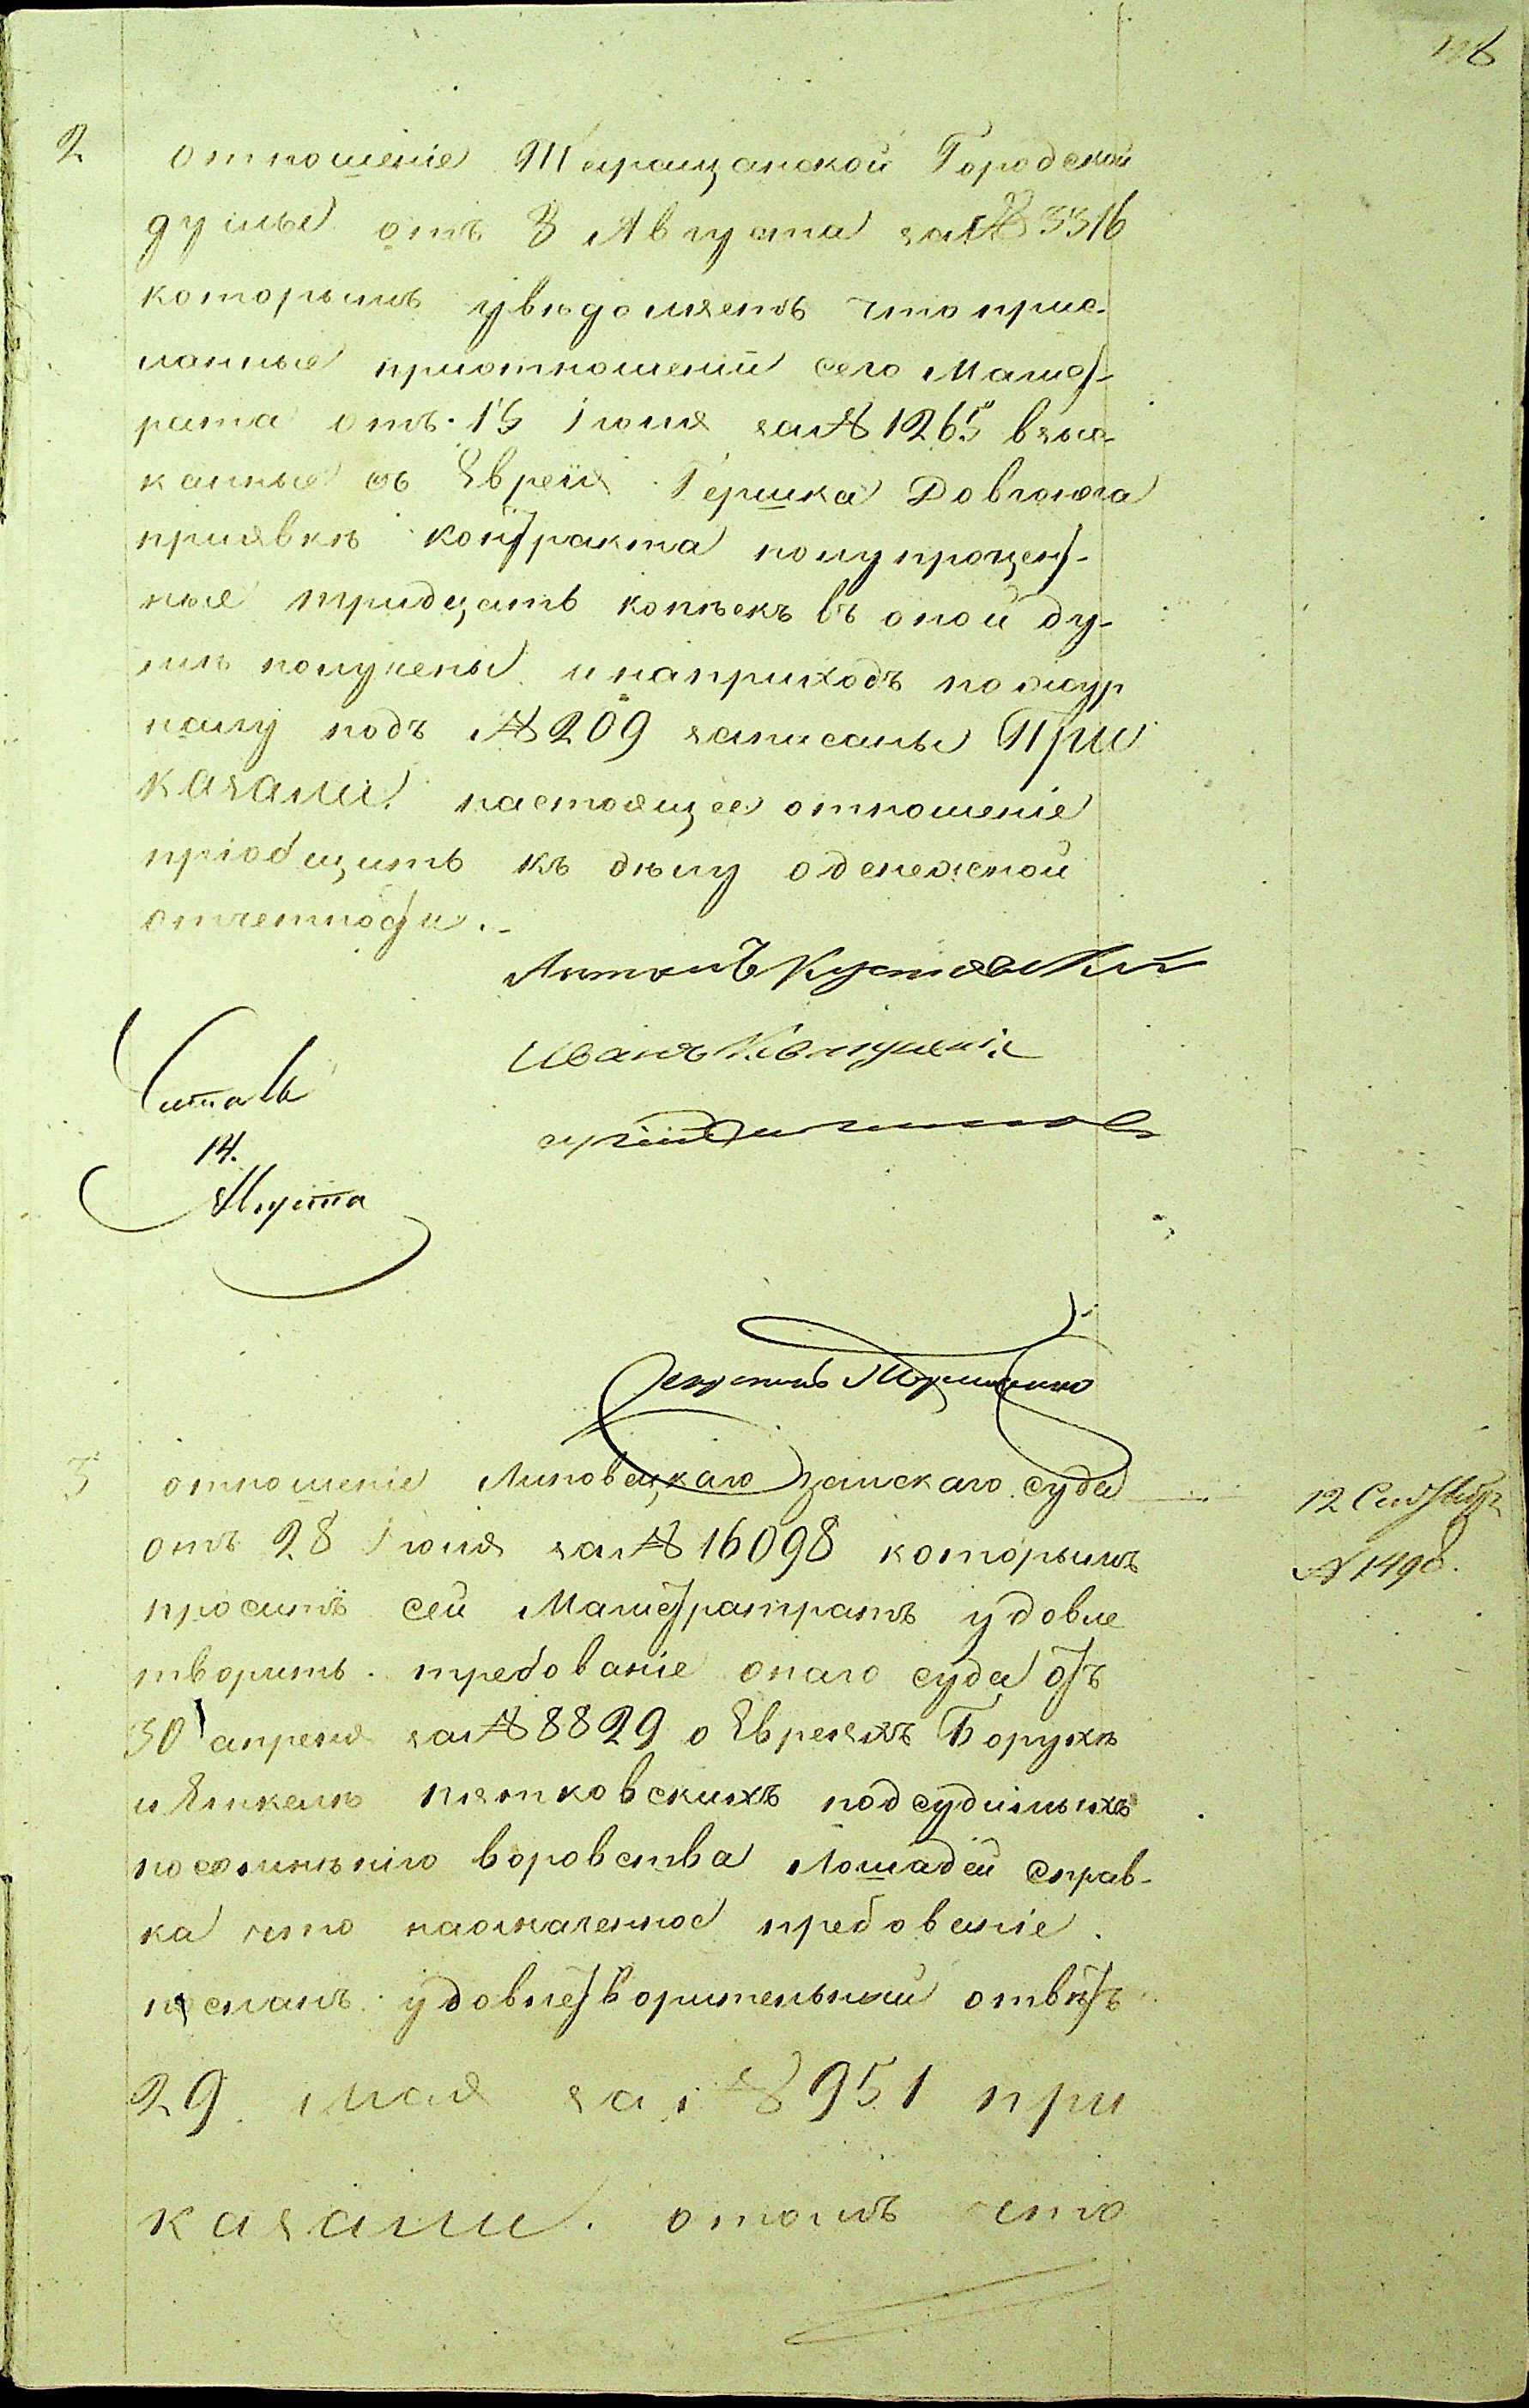 2
отношеніе Таращанской Городской
думы отъ 8 Августа за № 3316
которымъ увѣдомляетъ что прис-
ланные приотношеніи сего Магист-
рата отъ 15 Іюля за № 1265 взыс-
канные съ Еврея Гершка Довгонога
приявкѣ контракта полупроцент-
ные тридцать копѣекъ въ оной ду-
мѣ получены и наприходъ по жур
налу подъ № 209 записаны При
казали: настоящее отношеніе
пріобщить къ дѣлу оденежной
отчетности.
Антонъ
Иванъ
Читалъ
14.
Августа
3
отношеніе Липовецкаго земскаго суда
отъ 28 Іюля за № 16098 которымъ
проситъ сей Магистратратъ удовле
творить требованіе онаго суда отъ
30 апреля за № 8829 о Евреяхъ Борухѣ
и Янкелѣ Пятковскихъ подсудимыхъ
посомнѣнію воровства Лошадей справ-
ка что наозначенное требованіе
посланъ удовлетворительный отвѣтъ
29 мая за № 951 при
казали: отомъ что
12 Сентября
№ 1498.